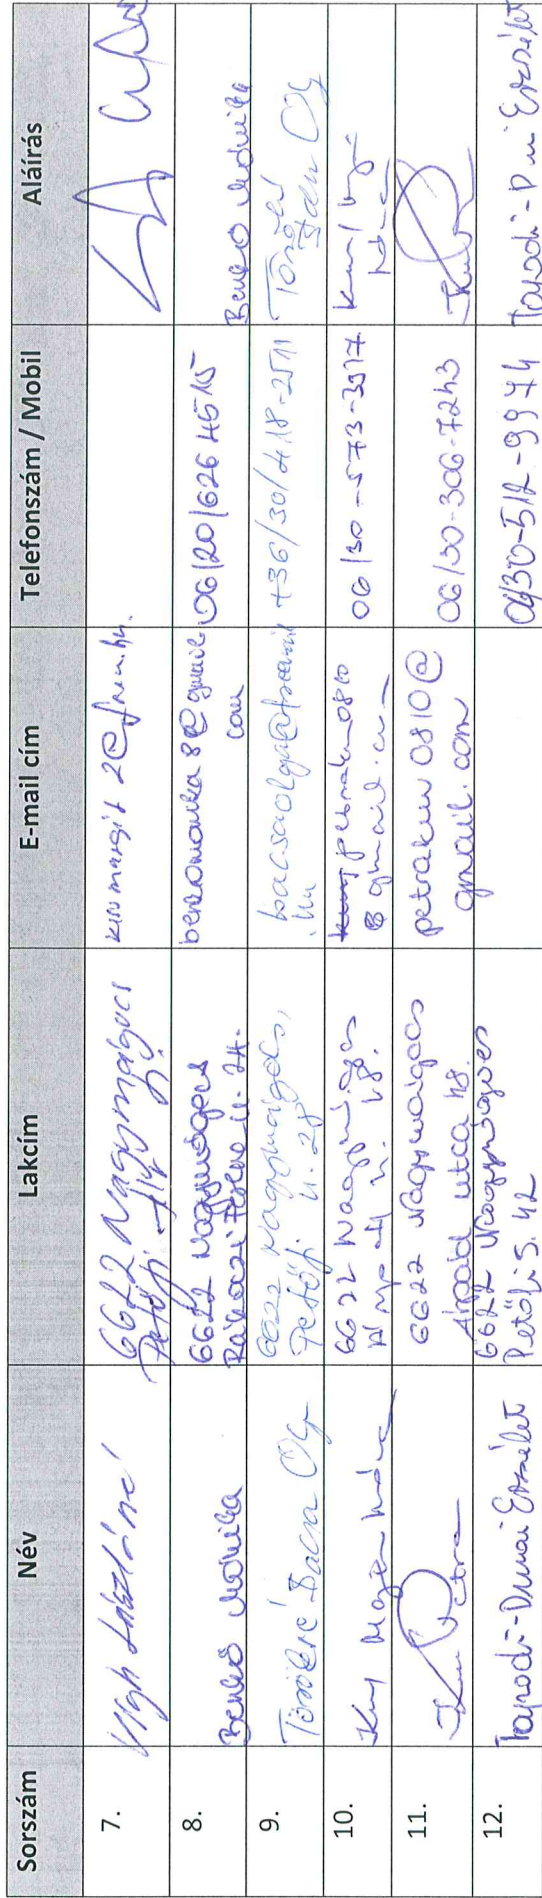 Sorszám Név Lakcím E-mail cím Telefonszám / Mobil Aláírás
7. Vígh Lászlóné 6622 Nagymágocs
Petőfi
8. Benkő Mónika 6622 Nagymágocs
Rákóczi Ferenc u. 24. benkomonika8@gmail
com 06/20/626 4515 Benkő Mónika
9. Törökné Bacsa Olga 6622 Nagymágocs,
Petőfi u. 28 bacsaolga@freemail
.hu +36/30/418-2511 Törökné
Bacsa Olg
10. 6622 Nagymágocs
Árpád u. 48. petrakun0810
@gmail.com 06/30-573-3917
11. Kun Petra 6622 Nagymágocs
Árpád utca 48. petrakun0810@
gmail.com 06/30-306-7243
12. Tápodi-Dunai Erzsébet 6622 Nagymágocs
Petőfi S. 42 06/30-512-9974